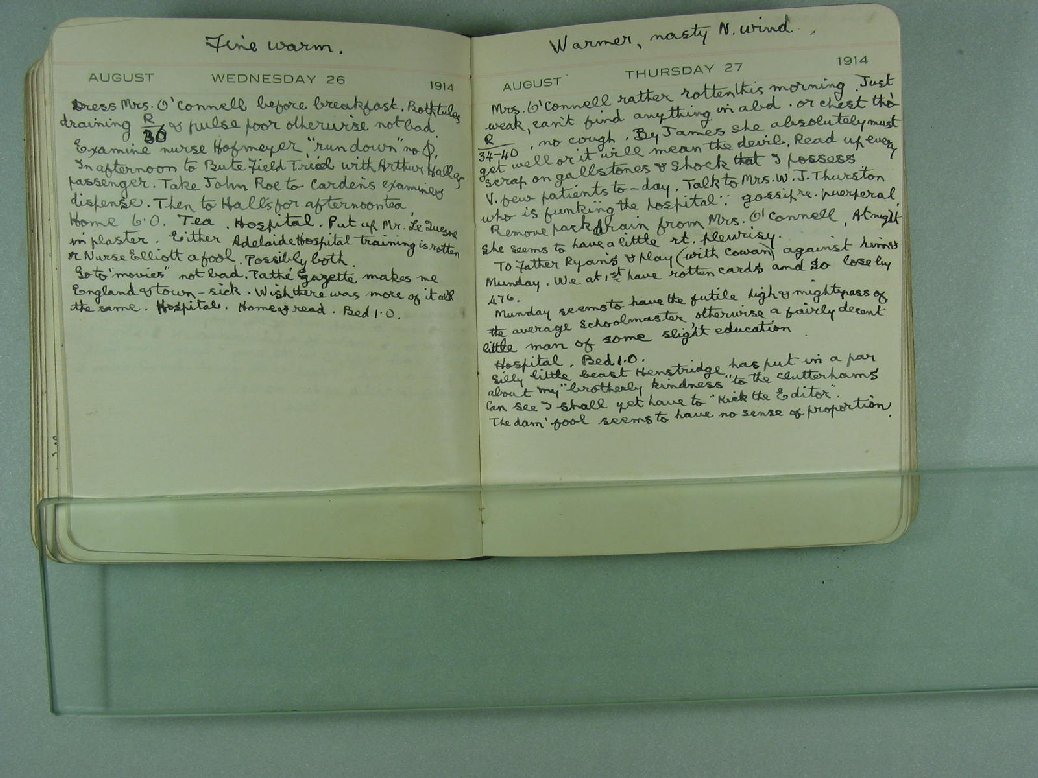 Fine warm.
AUGUST WEDNESDAY 26 1914
Dress Mrs. O'Connell before breakfast. Both tubes
draining R/30 & pulse poor otherwise not bad.
Examine nurse Hofmeyer 'run down' no
In afternoon to Bute Field Trial with Arthur Hall as
passenger. Take John Roe to Cardens examine &
dispense. Then to Halls for afternoon tea.
Home 6.0. Tea. Hospital. Put up Mr. Le Quesne
in plaster. Either Adelaide Hospital training is rotten
or Nurse Elliott a fool. Possibly both.
Go to "movies" not bad. Pathé Gazette makes me
England & town-sick. Wish there was more of it all
the same. Hospital. Home & read. Bed 1.0.
Warmer, nasty N. wind.
AUGUST THURSDAY 27 1914
Mrs. O'Connell rather rotten this morning. Just
weak, can't find anything in abd. or chest tho'
R/34-40, no cough. By James she absolutely must
get well or it will mean the devil. Read up every
scrap on gallstones & shock that I possess
V. few patients to-day. Talk to Mrs. W. J. Thurston
who is funking the hospital: gossip re. puerperal
Remove pack drain from Mrs. O'Connell. At night
she seems to have a little rt. pleurisy.
To Father Ryan's & play (with Cowan) against him &
Munday. We at 1st have rotten cards and so lose by
476.
Munday seems to have the futile high & mightiness of
the average schoolmaster otherwise a fairly decent
little man of some slight education
Hospital. Bed 1.0.
Silly little beast Henstridge, has put in a par
about my "brotherly kindness" to the Clutterhams
Can see I shall yet have to "Kick the Editor".
The dam' fool seems to have no sense of proportion.